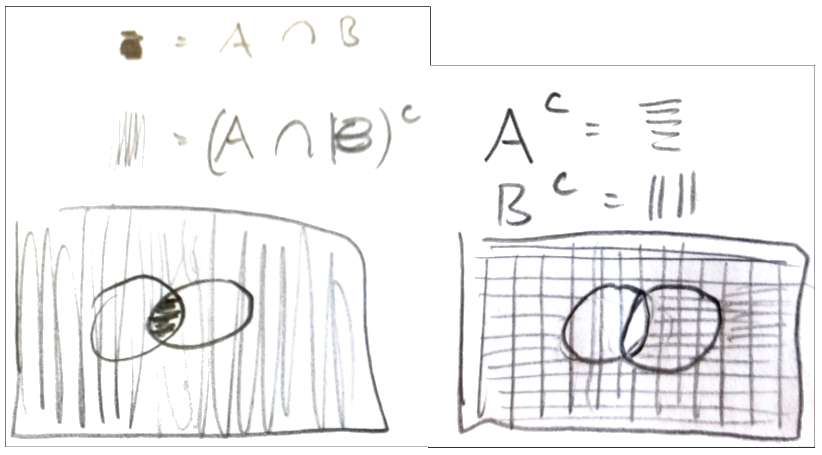 = A ∩ B
= (A ∩ B)ᶜ
Aᶜ =
Bᶜ =